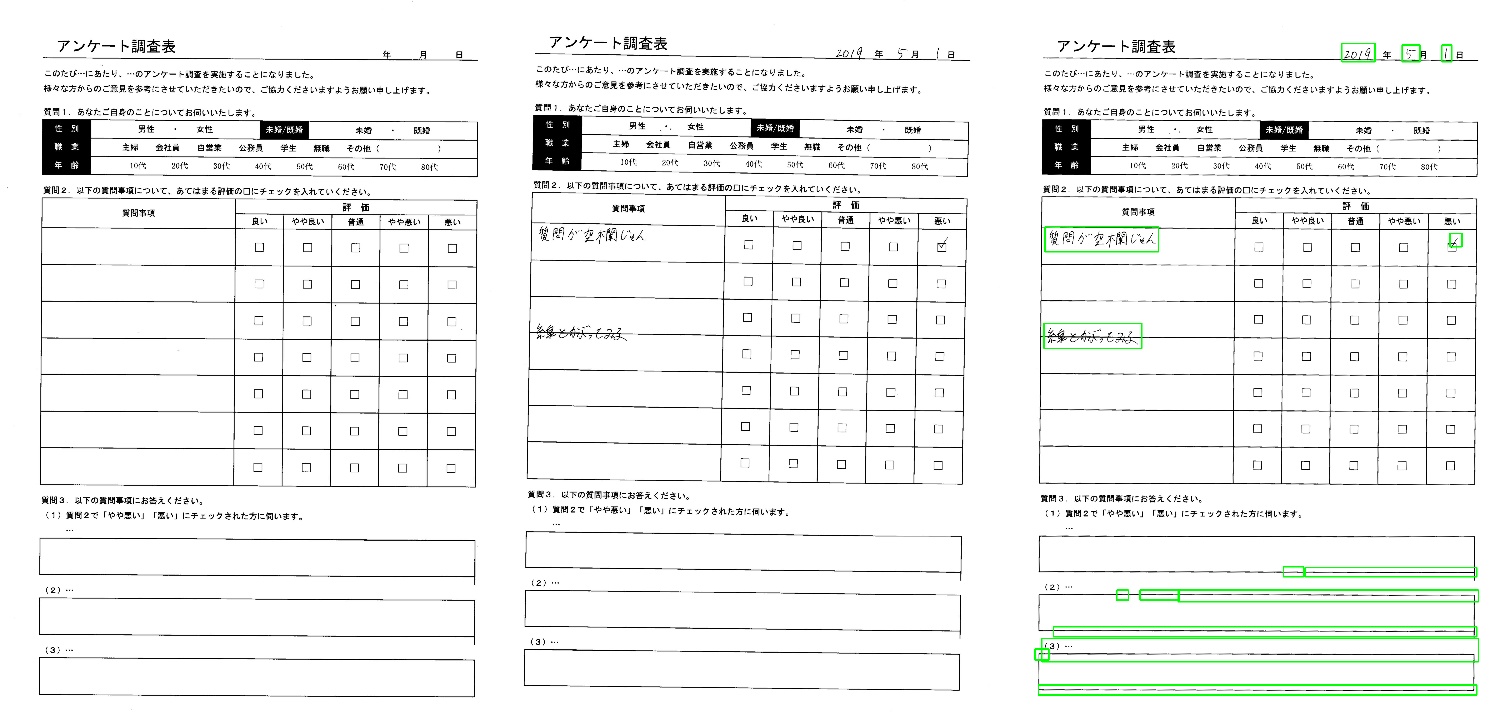 アンケート調査表
年 月 日
このたび…にあたり、…のアンケート調査を実施することになりました。
様々な方からのご意見を参考にさせていただきたいので、ご協力くださいますようお願い申し上げます。
質問1. あなたご自身のことについてお伺いいたします。
性 別 男性 ・ 女性 未婚/既婚 未婚 ・ 既婚
職 業 主婦 会社員 自営業 公務員 学生 無職 その他 ( )
年 齢 10代 20代 30代 40代 50代 60代 70代 80代
質問2. 以下の質問事項について、あてはまる評価の口にチェックを入れていください。
質問事項 評 価
良い やや良い 普通 やや悪い 悪い
質問3. 以下の質問事項にお答えください。
(1) 質問2で「やや悪い」「悪い」にチェックされた方に伺います。
…
(2) …
(3) …
アンケート調査表
2019 年 5 月 1 日
このたび…にあたり、…のアンケート調査を実施することになりました。
様々な方からのご意見を参考にさせていただきたいので、ご協力くださいますようお願い申し上げます。
質問1. あなたご自身のことについてお伺いいたします。
性 別 男性 ・ 女性 未婚/既婚 未婚 ・ 既婚
職 業 主婦 会社員 自営業 公務員 学生 無職 その他 ( )
年 齢 10代 20代 30代 40代 50代 60代 70代 80代
質問2. 以下の質問事項について、あてはまる評価の口にチェックを入れていください。
質問事項 評 価
良い やや良い 普通 やや悪い 悪い
質問が空欄じゃん
線とかぶってみる
質問3. 以下の質問事項にお答えください。
(1) 質問2で「やや悪い」「悪い」にチェックされた方に伺います。
…
(2) …
(3) …
アンケート調査表
2019 年 5 月 1 日
このたび…にあたり、…のアンケート調査を実施することになりました。
様々な方からのご意見を参考にさせていただきたいので、ご協力くださいますようお願い申し上げます。
質問1. あなたご自身のことについてお伺いいたします。
性 別 男性 ・ 女性 未婚/既婚 未婚 ・ 既婚
職 業 主婦 会社員 自営業 公務員 学生 無職 その他 ( )
年 齢 10代 20代 30代 40代 50代 60代 70代 80代
質問2. 以下の質問事項について、あてはまる評価の口にチェックを入れていください。
質問事項 評 価
良い やや良い 普通 やや悪い 悪い
質問が空欄じゃん
線とかぶってみる
質問3. 以下の質問事項にお答えください。
(1) 質問2で「やや悪い」「悪い」にチェックされた方に伺います。
…
(2) …
(3) …